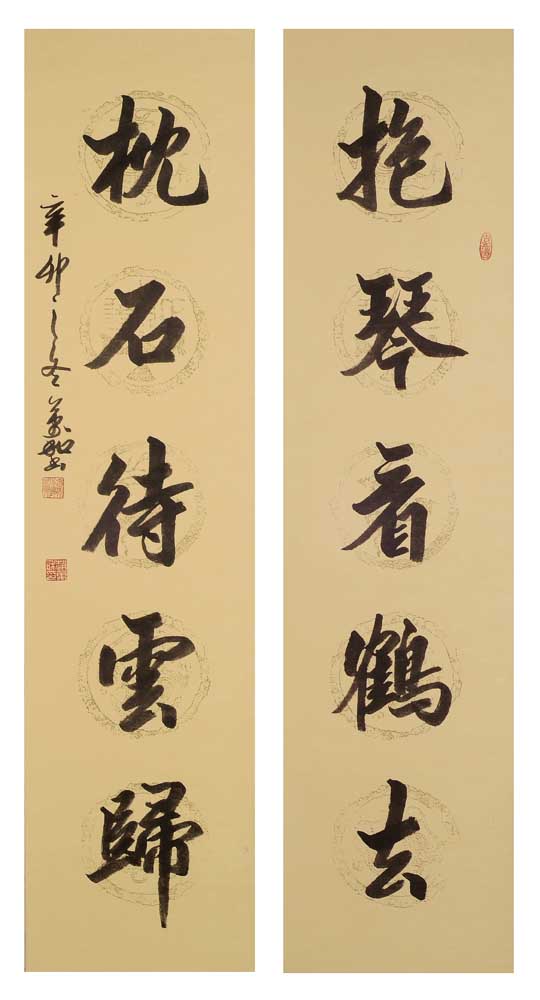 抱琴看鶴去
枕石待雲歸
辛卯之冬